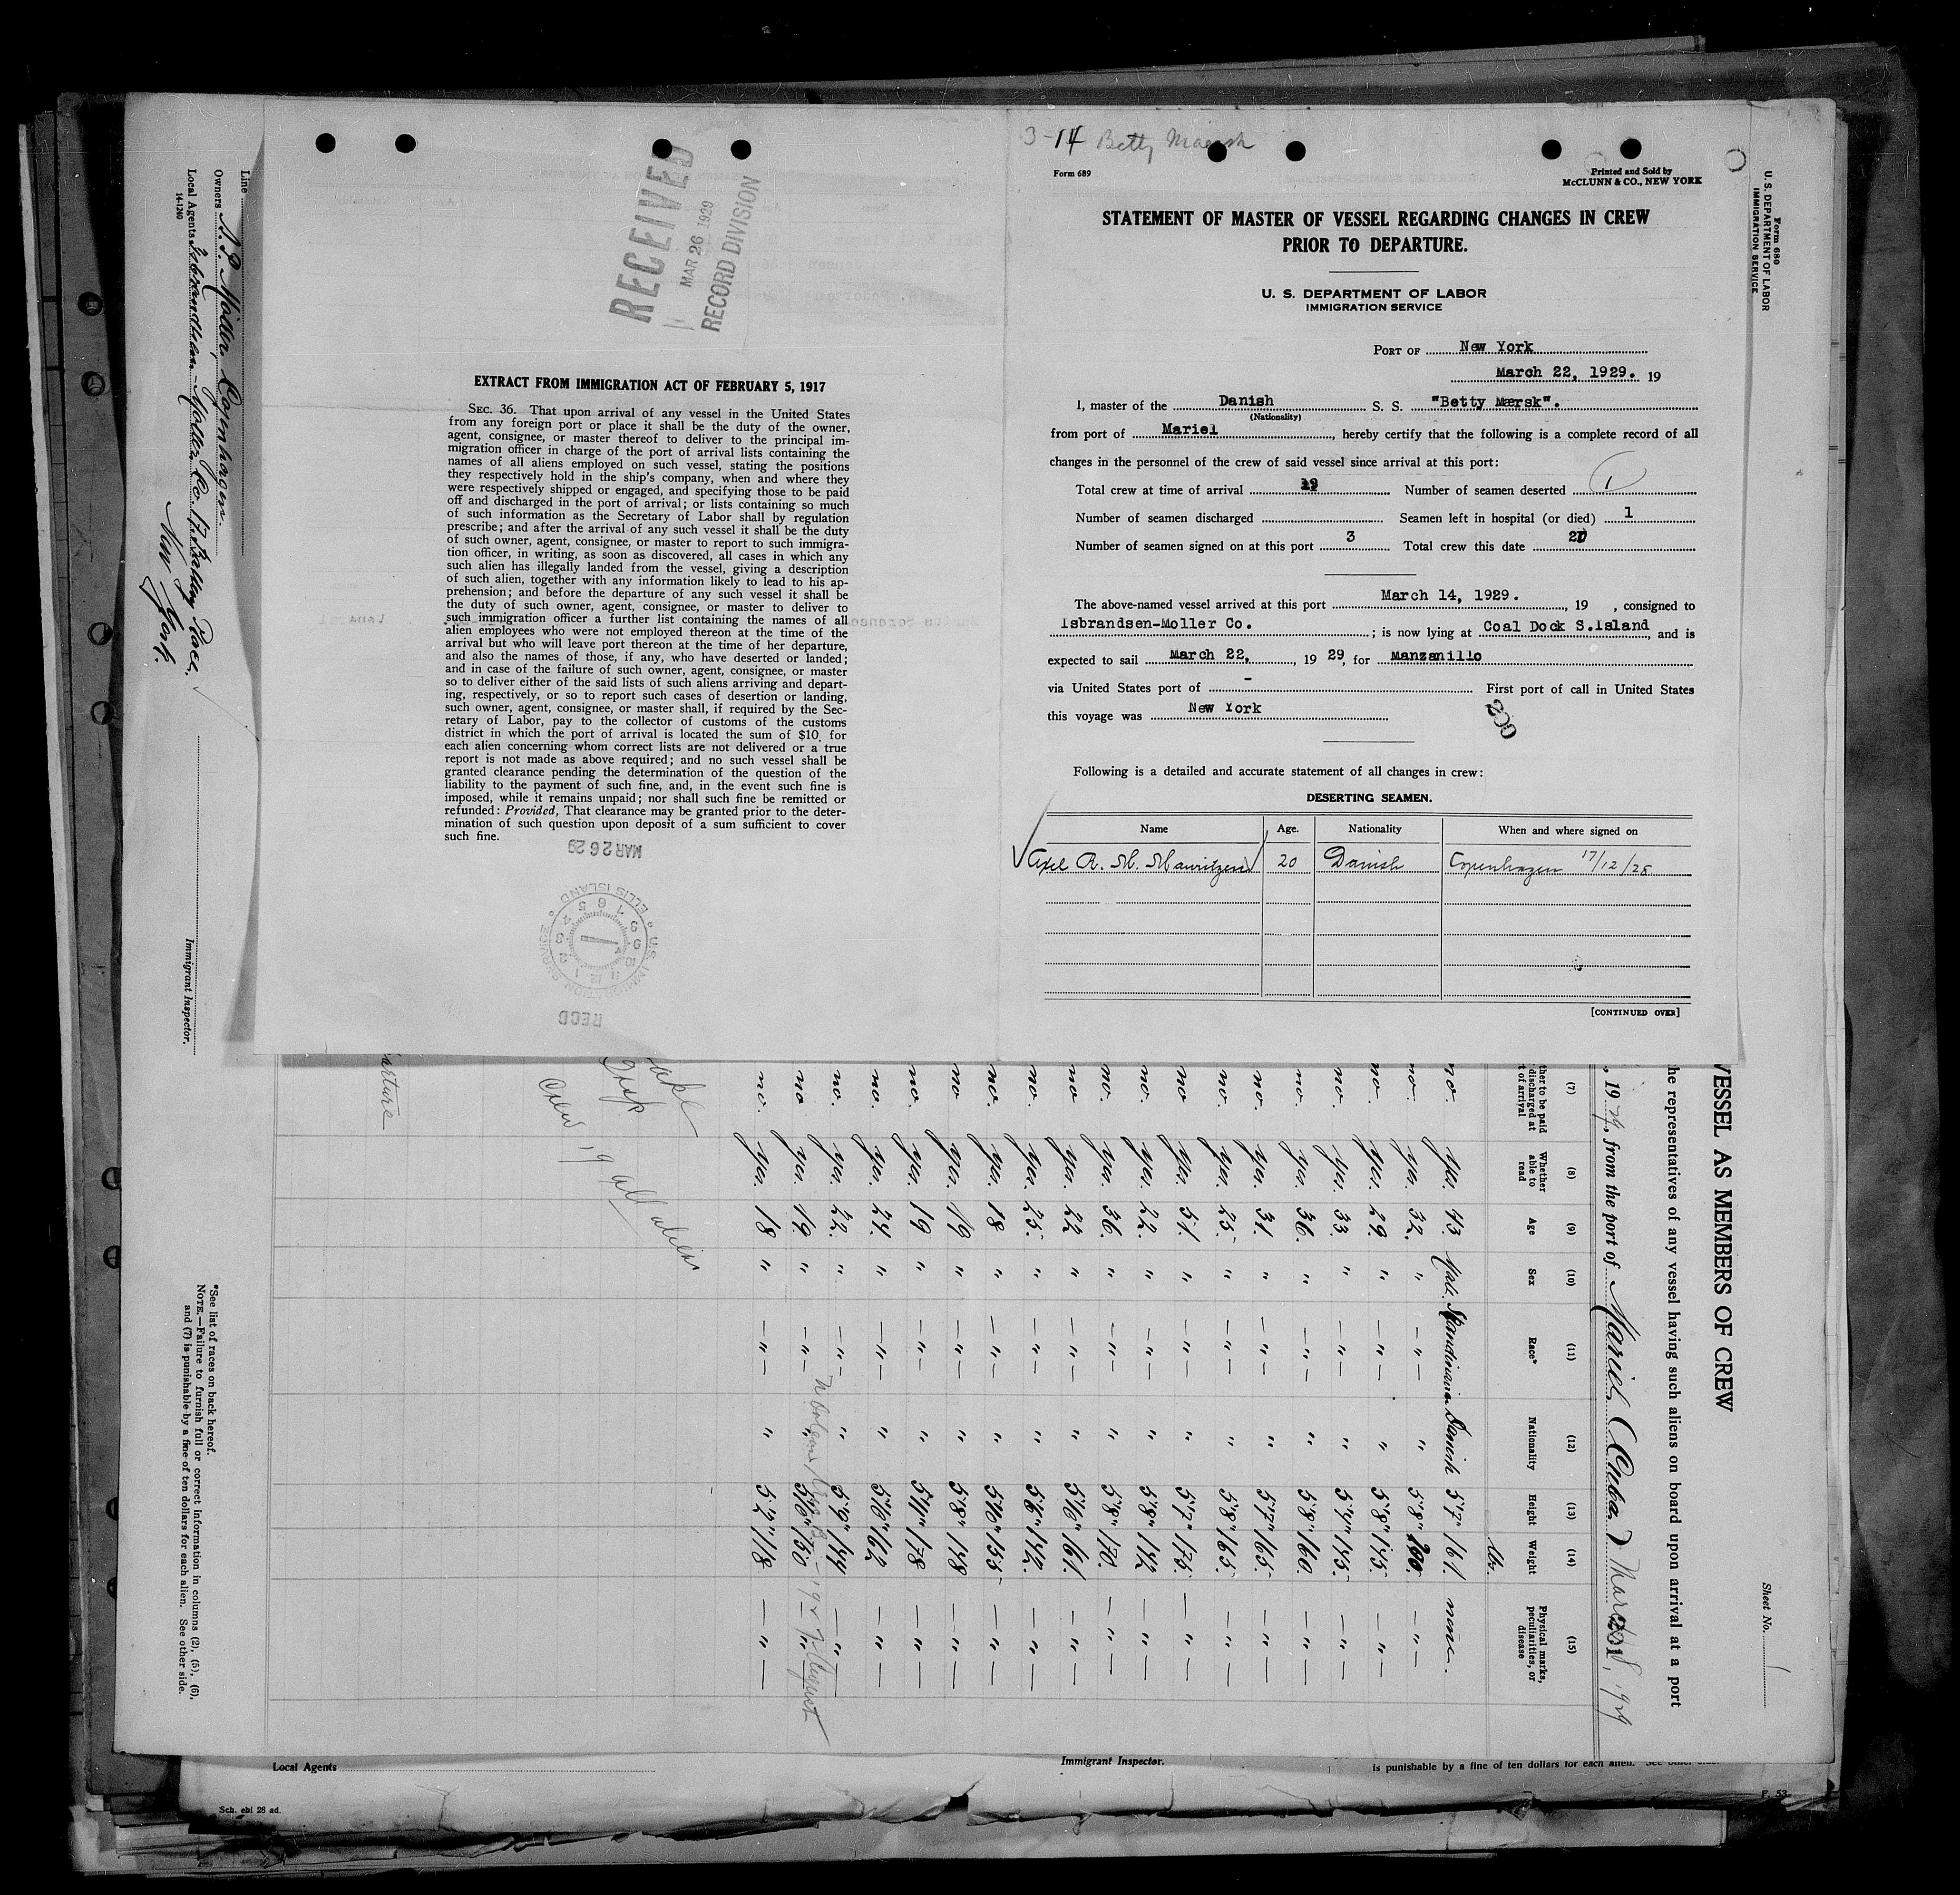 3-14 Betty Maersk
Form 689
Printed and Sold by
McCLUNN & CO., NEW YORK
STATEMENT OF MASTER OF VESSEL REGARDING CHANGES IN CREW
PRIOR TO DEPARTURE.
U. S. DEPARTMENT OF LABOR
IMMIGRATION SERVICE
PORT OF New York
March 22, 1929. 19
I, master of the Danish S. S. "Betty Mærsk".
(Nationality)
from port of Mariel, hereby certify that the following is a complete record of all
changes in the personnel of the crew of said vessel since arrival at this port:
Total crew at time of arrival 19 Number of seamen deserted 1
Number of seamen discharged Seamen left in hospital (or died) 1
Number of seamen signed on at this port 3 Total crew this date
The above-named vessel arrived at this port March 14, 1929. , 19 , consigned to
Isbrandsen-Moller Co. ; is now lying at Coal Dock S.Island, and is
expected to sail March 22, , 19 29, for Manzanillo
via United States port of - First port of call in United States
this voyage was New York
Following is a detailed and accurate statement of all changes in crew:
DESERTING SEAMEN.
Name Age. Nationality When and where signed on
Axel R. M. Mauritzen 20 Danish Copenhagen 17/12/28
[CONTINUED OVER]
RECEIVED
MAR 26 1929
RECORD DIVISION
EXTRACT FROM IMMIGRATION ACT OF FEBRUARY 5, 1917
SEC. 36. That upon arrival of any vessel in the United States
from any foreign port or place it shall be the duty of the owner,
agent, consignee, or master thereof to deliver to the principal im-
migration officer in charge of the port of arrival lists containing the
names of all aliens employed on such vessel, stating the positions
they respectively hold in the ship's company, when and where they
were respectively shipped or engaged, and specifying those to be paid
off and discharged in the port of arrival; or lists containing so much
of such information as the Secretary of Labor shall by regulation
prescribe; and after the arrival of any such vessel it shall be the duty
of such owner, agent, consignee, or master to report to such immigra-
tion officer, in writing, as soon as discovered, all cases in which any
such alien has illegally landed from the vessel, giving a description
of such alien, together with any information likely to lead to his ap-
prehension; and before the departure of any such vessel it shall be
the duty of such owner, agent, consignee, or master to deliver to
such immigration officer a further list containing the names of all
alien employees who were not employed thereon at the time of the
arrival but who will leave port thereon at the time of her departure,
and also the names of those, if any, who have deserted or landed;
and in case of the failure of such owner, agent, consignee, or master
so to deliver either of the said lists of such aliens arriving and depart-
ing, respectively, or so to report such cases of desertion or landing,
such owner, agent, consignee, or master shall, if required by the Sec-
retary of Labor, pay to the collector of customs of the customs
district in which the port of arrival is located the sum of $10 for
each alien concerning whom correct lists are not delivered or a true
report is not made as above required; and no such vessel shall be
granted clearance pending the determination of the question of the
liability to the payment of such fine, and, in the event such fine is
imposed, while it remains unpaid; nor shall such fine be remitted or
refunded: Provided, That clearance may be granted prior to the deter-
mination of such question upon deposit of a sum sufficient to cover
such fine.
MAR 26 29
U.S. IMMIGRATION SERVICE
ELLIS ISLAND
RECD
Form 680
U. S. DEPARTMENT OF LABOR
IMMIGRATION SERVICE
Sheet No.
VESSEL AS MEMBERS OF CREW
he representatives of any vessel having such aliens on board upon arrival at a port
, 1929, from the port of Mariel (Cuba)
(7) (8) (9) (10) (11) (12) (13) (14) (15)
ther to be paid discharged at t of arrival
Whether able to read
Age
Sex
Race*
Nationality
Height
Weight
Physical marks, peculiarities, or disease
lbs.
no. yes. 43. Male Skandinavian Danish 5'7" 161. none.
no. yes. 32. " — " — " 5'8" — " —
no. yes. 29. " — " — " 5'8" 145. — " —
no. yes. 33. " — " — " 145. — " —
no. yes. 36. " — " — " 5'8" 160. — " —
no. yes. 31. " — " — " 5'7" 165. — " —
no. yes. 25. " — " — " 5'8" 165. — " —
no yes. 51. " — " — " 5'7" 175. — " —
no. yes. 22. " — " — " 5'8" 142 — " —
no. yes. 36. " — " — " 5'8" 170. — " —
no yes. 22 " — " — " 5'6" 161. — " —
no yes. 25. " — " — " 5'6" 142. — " —
no. yes. 18 " — " — " 5'6" 155 — " —
no yes. 19 " — " — " 5'8" 148 — " —
no. yes. 19 " — " — " 178 — " —
no. yes. 24. " — " — " 5'6" 162 — " —
no. yes. 22. " — " — " 5'9" 144 — " —
no yes. 19. " — " — " 5'6" 150 — " —
no. yes. 18 " — " — " 5'2" 118 — " —
Crew 19 all aliens
arture
*See list of races on back hereof.
NOTE.—Failure to furnish full or correct information in columns (2), (5), (6),
and (7) is punishable by a fine of ten dollars for each alien. See other side.
Line
Owners A. P. Möller, Copenhagen.
Local Agents Isbrandtsen-Moller Co. 17 Battery Place,
New York.
14-1240
Immigrant Inspector.
Local Agents
Immigrant Inspector.
is punishable by a fine of ten dollars for each alien.
Sch. ebl 28 ad.